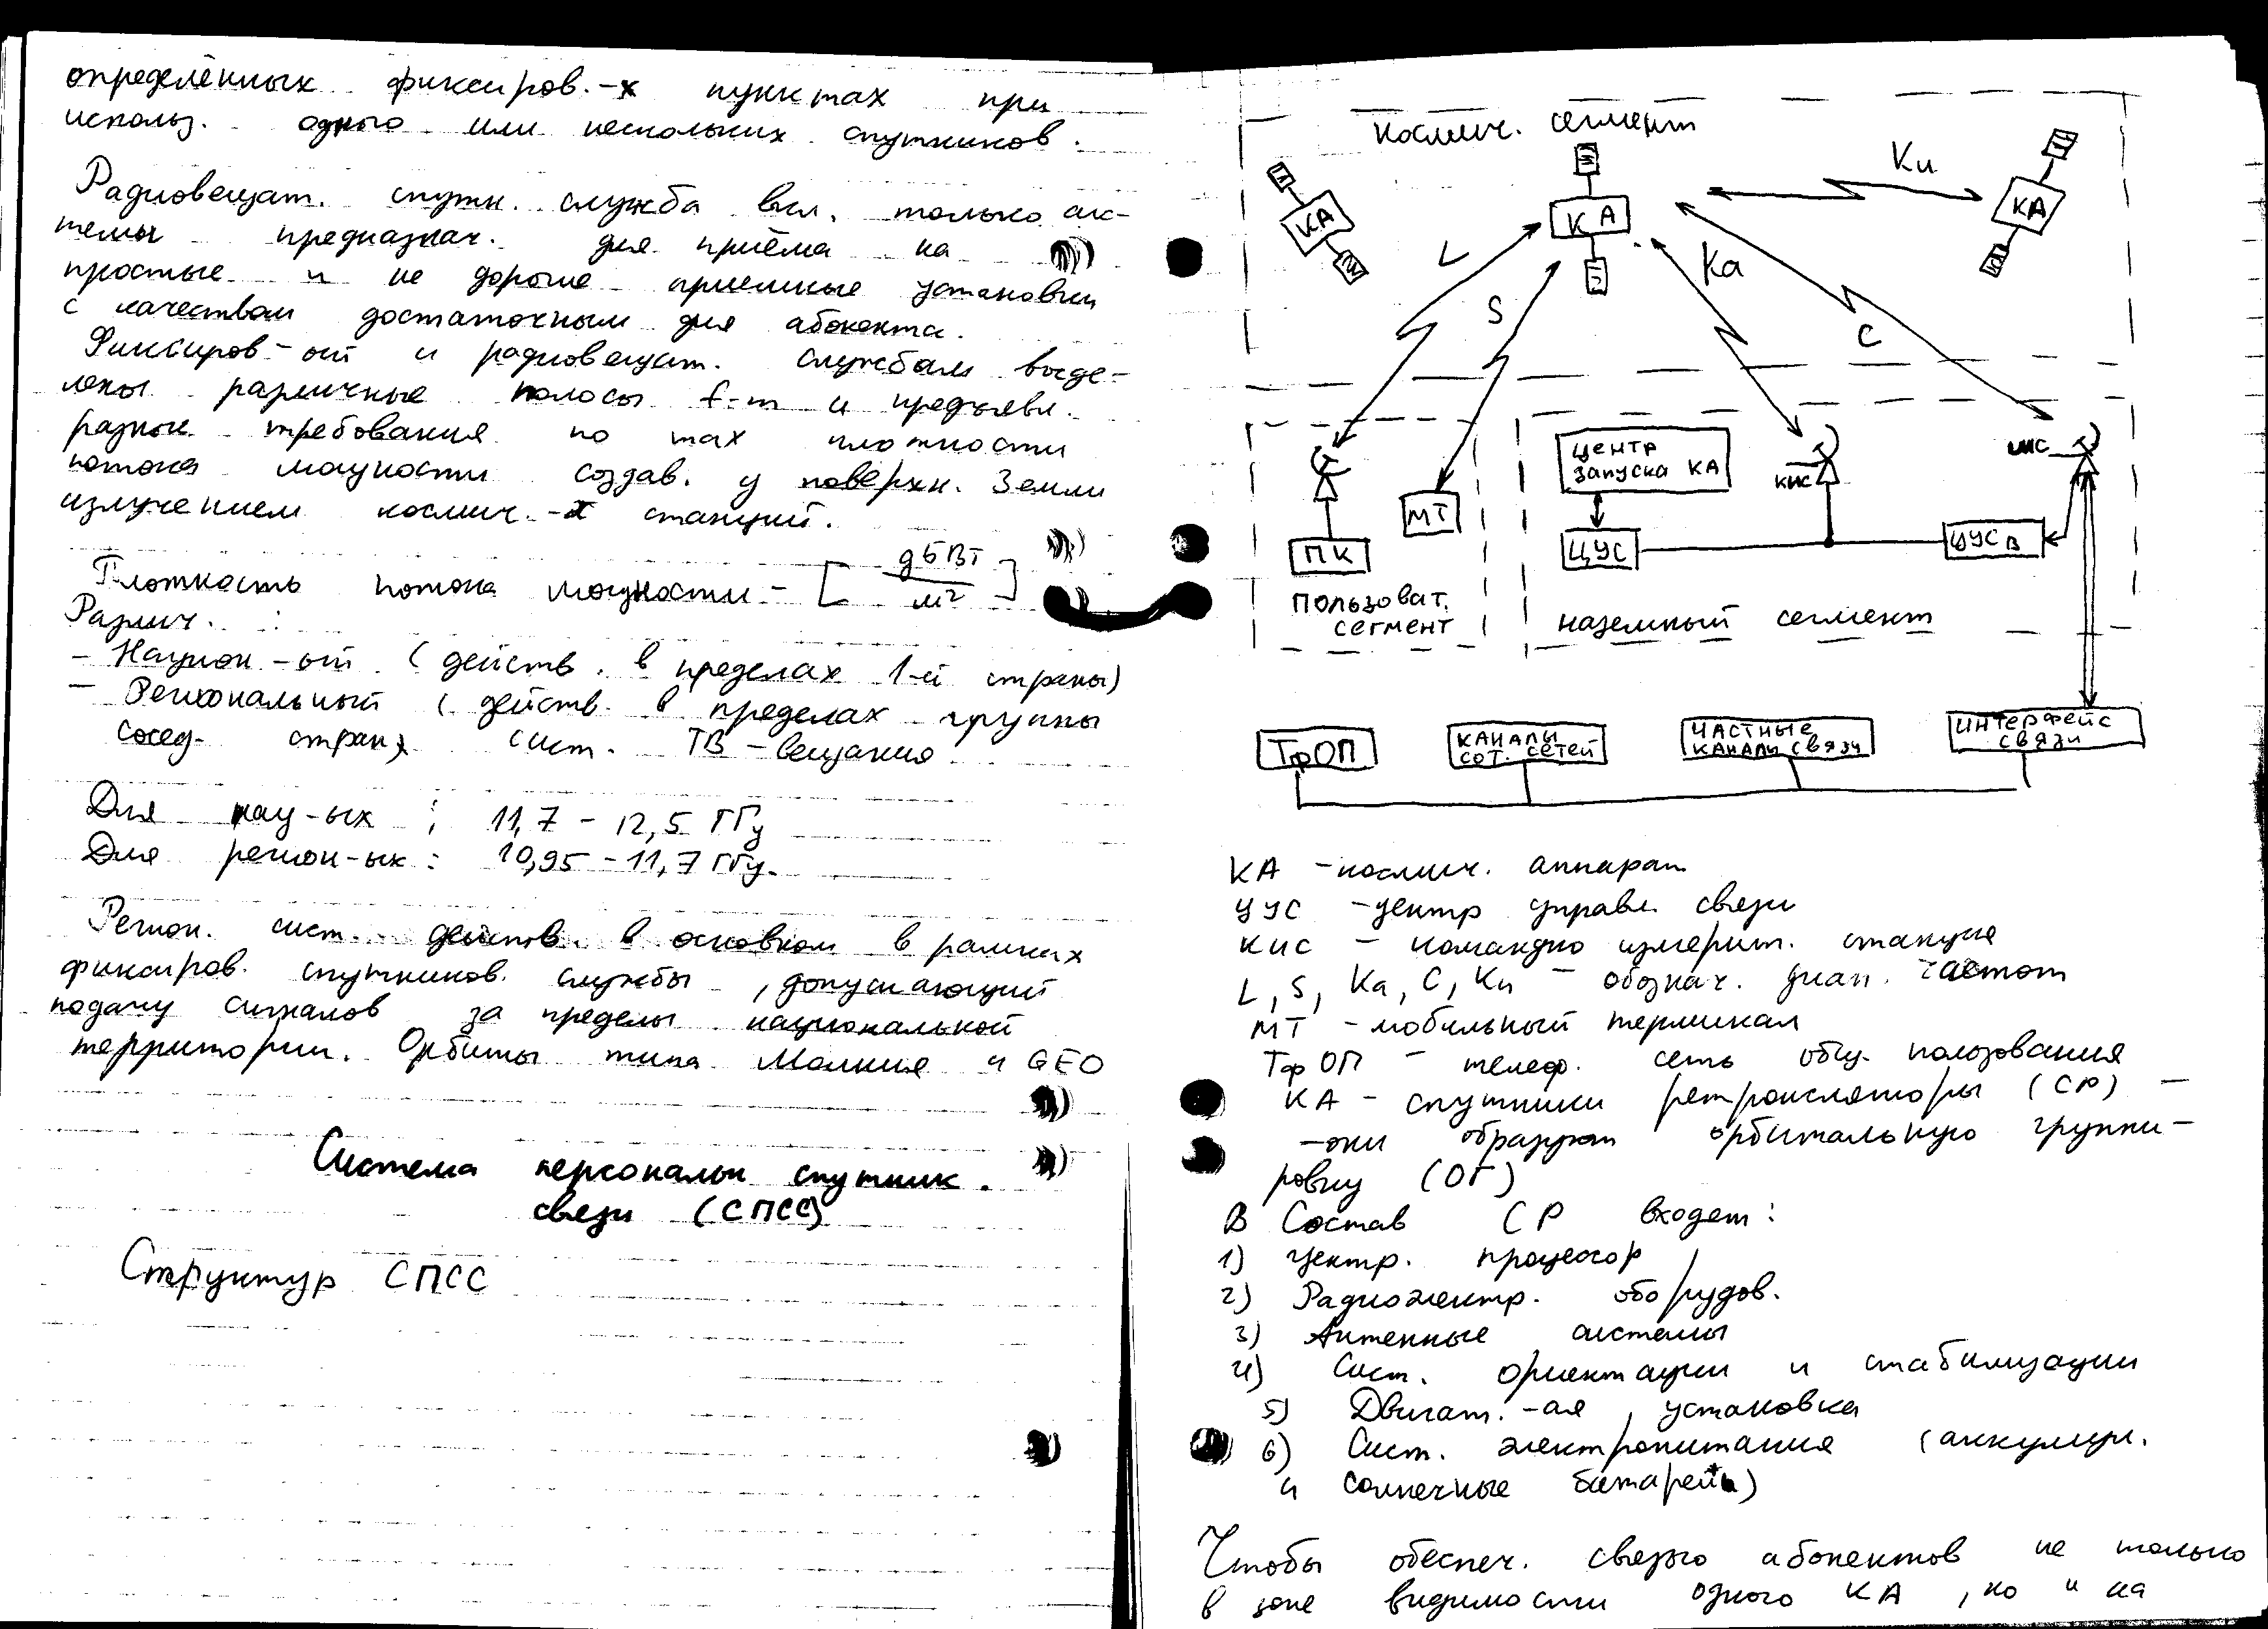 определённых фиксиров.-х пунктах при
использ. одного или нескольких спутников.
Радиовещат. спутн. служба вкл. только сис-
темы предназнач. для приёма на
простые и не дорогие приемные установки
с качеством достаточным для абонента.
Фиксиров-ой и радиовещат. службам выде-
лены различные полосы f-т и предъявл.
разные требования по max плотности
потока мощности создав. у поверхн. Земли
излучением космич.-х станций.
Плотность потока мощности - [дБВт/м²]
Различ. :
- Национ-ый (действ. в пределах 1-й страны)
- Региональный (действ. в пределах группы
сосед. стран) сист. ТВ-вещания
Для нац-ых : 11,7 - 12,5 ГГц
Для регион-ых : 10,95 - 11,7 ГГц.
Регион. сист. действ. в основном в рамках
фиксиров. спутников. службы, допускающий
подачу сигналов за пределы национальной
территории. Орбиты типа Молния и GEO
Система персональн спутник.
связи (СПСС)
Структур СПСС
космич. сегмент
КА
КА
КА
Ku
L
S
Ka
C
ПК
МТ
пользоват.
сегмент
центр
запуска КА
КИС
КИС
ЦУС
ЦУСВ
наземный сегмент
ТфОП
каналы
сот. сетей
частные
каналы связи
интерфейс
связи
КА - космич. аппарат
ЦУС - центр управл. связи
КИС - командно измерит. станция
L, S, Ka, C, Ku - обознач. диап. частот
МТ - мобильный терминал
ТфОП - телеф. сеть общ. ползования
КА - спутники ретрансляторы (СР) -
- они образуют орбитальную группи-
ровку (ОГ)
В состав СР входят:
1) Центр. процесор
2) Радиоэлектр. оборудов.
3) Антенные системы
4) Сист. ориентации и стабилизации
5) Двигат.-ая установка
6) Сист. электропитания (аккумул.
и солнечные батареи)
Чтобы обеспеч. связью абонентов не только
в зоне видимости одного КА, но и на